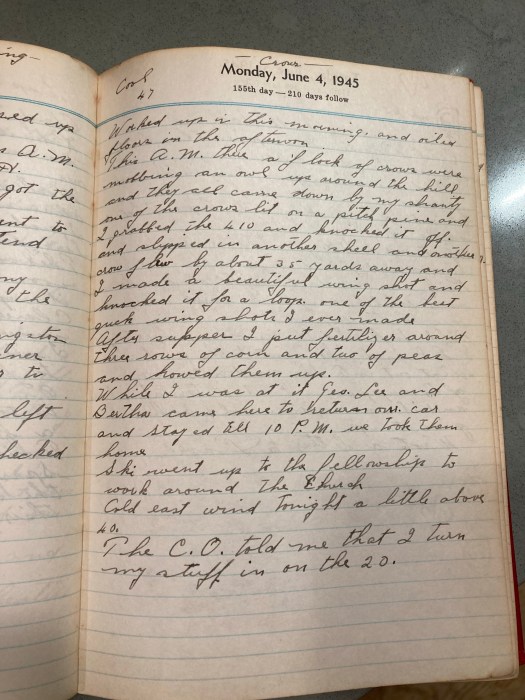 ing-
ed up
A.M.
got the
ent to
tend
my
the
ngston
ner
to
left
hecked
— Crows —
Cool
47
Monday, June 4, 1945
155th day — 210 days follow
Worked up in this morning. and oiled
floors in the afternoon
This A.M. there a flock of crows were
mobbing an owl up around the hill
and they all came down by my shanty
one of the crows lit on a pitch pine and
I grabbed the 410 and knocked it off.
and slipped in another shell and another
crow flew by about 35 yards away and
I made a beautiful wing shot and
knocked it for a loop. one of the best
quck wing shots I ever made
After supper I put fertilizer around
three rows of corn and two of peas
and howed them up.
While I was at it Geo. Lee and
Bertha came here to return our car
and stayed till 10 P.M. we took them
home
Ski went up to the fellowship to
work around the Church
Cold east wind tonight a little above
40.
The C.O. told me that I turn
my stuff in on the 20.